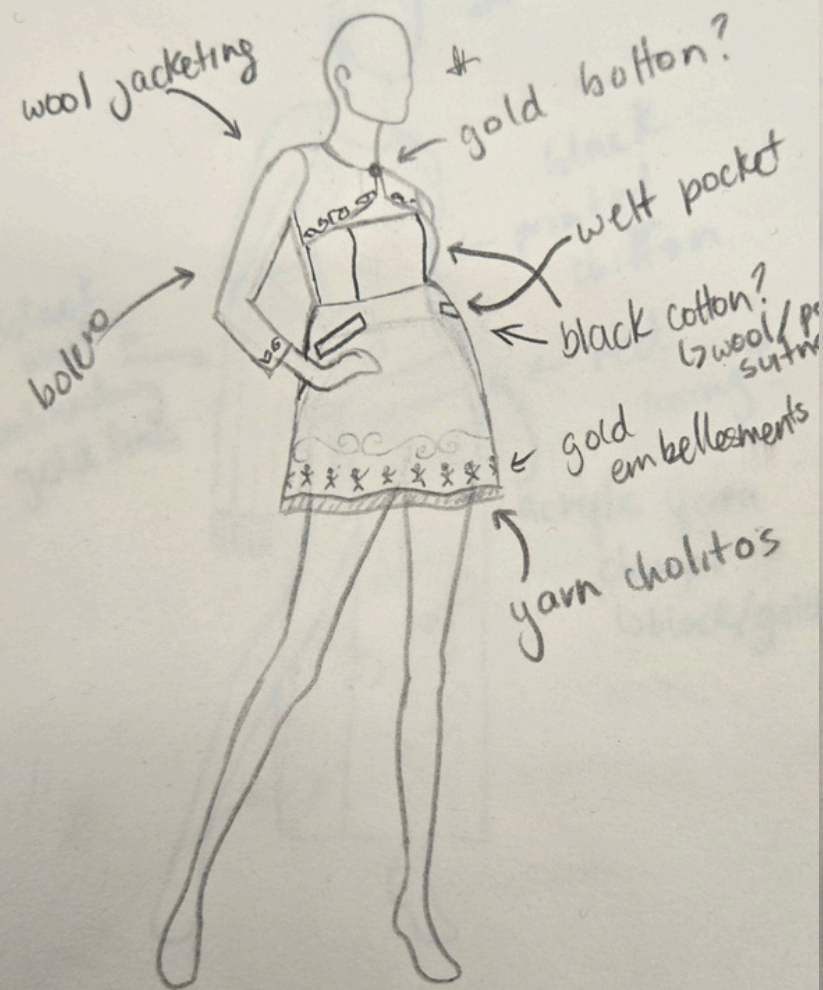 wool jacketing
gold botton?
welt pocket
bolero
black cotton?
wool/
gold
embellesments
yarn cholitos